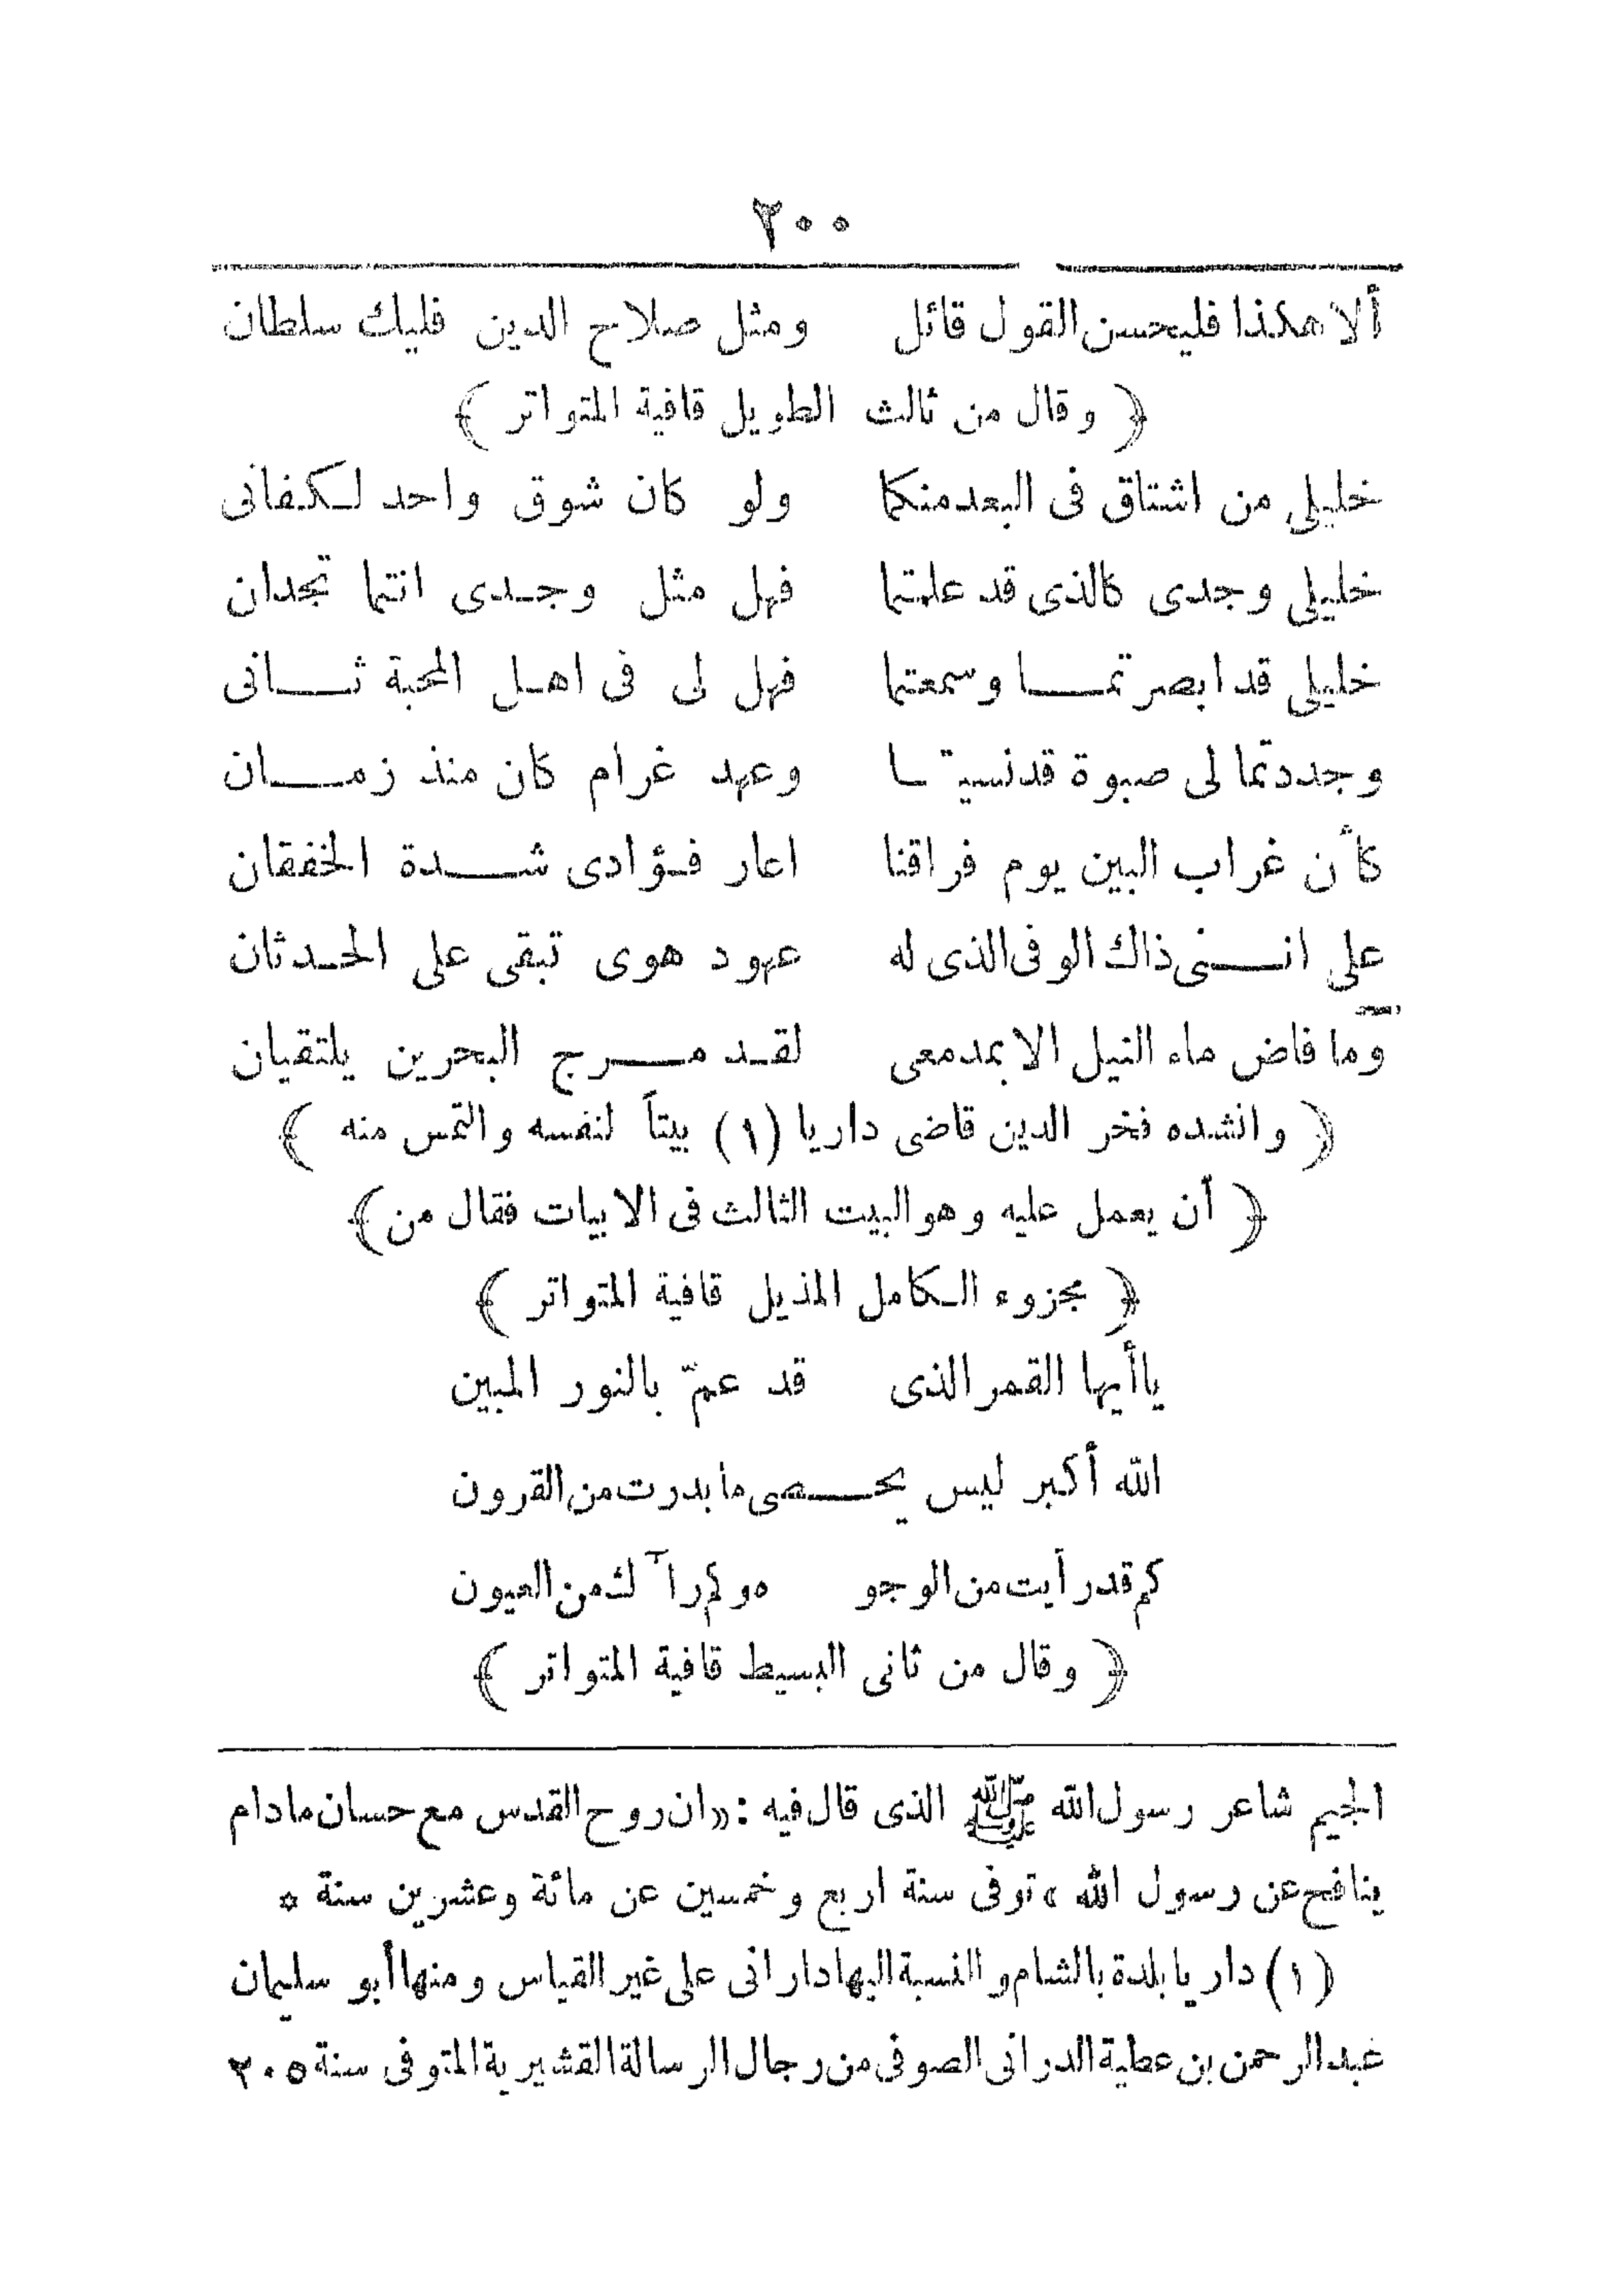 ٢٠٠
ألا هكذا فليحسن القول قائل ومثل صلاح الدين فليك سلطان
﴿ وقال من ثالث الطويل قافية المتواتر ﴾
خليلى من اشتاق فى البعد منكما ولو كان شوق واحد لكفانى
خليلى وجدى كالذى قد علمتما فهل مثل وجدى انتما تجدان
خليلى قد ابصرتمـا وسمعتما فهل لى فى اهل المحبة ثـانى
وجددتما لى صبوة قد نسيتـا وعهد غرام كان منذ زمـان
كأن غراب البين يوم فراقنا اعار فؤادى شـدة الخفقان
على انـنى ذاك الوفى الذى له عهود هوى تبقى على الحدثان
وما فاض ماء النيل الا بمدمعى لقد مـرج البحرين يلتقيان
﴿ وانشده فخر الدين قاضى داريا (١) بيتاً لنفسه والتمس منه ﴾
﴿ أن يعمل عليه وهو البيت الثالث فى الابيات فقال من ﴾
﴿ مجزوء الكامل المذيل قافية المتواتر ﴾
يا أيها القمر الذى قد عمّ بالنور المبين
الله أكبر ليس يحـصى ما بدرت من القرون
كم قد رأيت من الوجو ه وكم رآك من العيون
﴿ وقال من ثانى البسيط قافية المتواتر ﴾
الجيم شاعر رسول الله ﷺ الذى قال فيه : «ان روح القدس مع حسان مادام
ينافح عن رسول الله» توفى سنة اربع وخمسين عن مائة وعشرين سنة *
(١) داريا بلدة بالشام والنسبة اليها دارانى على غير القياس ومنها أبو سليمان
عبد الرحمن بن عطية الدرانى الصوفى من رجال الرسالة القشيرية المتوفى سنة ٢٠٥